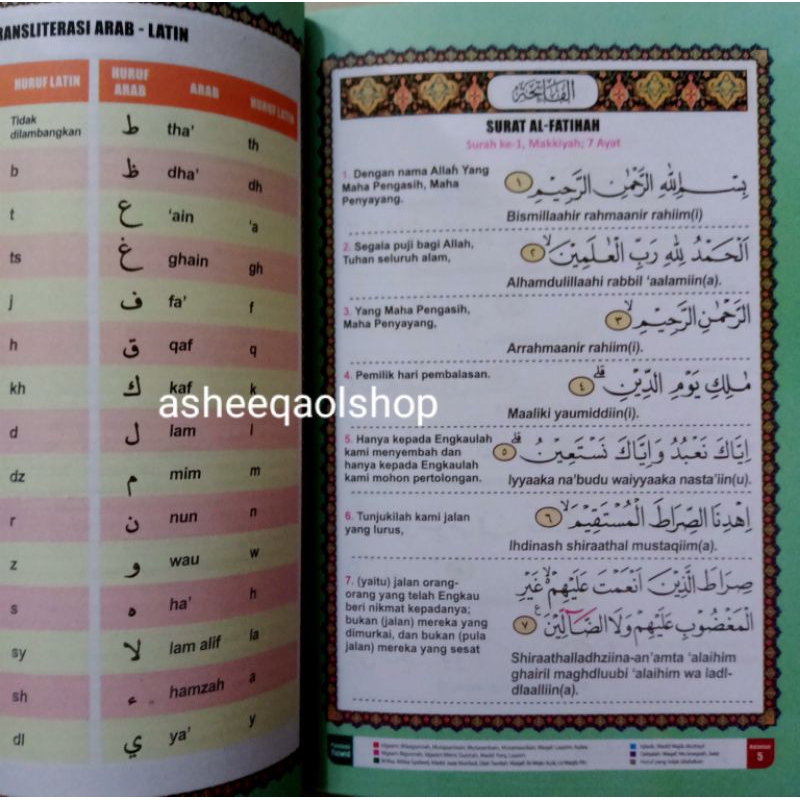 TRANSLITERASI ARAB - LATIN
HURUF LATIN HURUF ARAB ARAB HURUF LATIN
Tidak dilambangkan ط tha' th
b ظ dha' dh
t ع 'ain 'a
ts غ ghain gh
j ف fa' f
h ق qaf q
kh ك kaf k
d ل lam l
dz م mim m
r ن nun n
z و wau w
s ه ha' h
sy لا lam alif la
sh ء hamzah a
dl ي ya' y
asheeqaolshop
الفاتحة
SURAT AL-FATIHAH
Surah ke-1, Makkiyah; 7 Ayat
1. Dengan nama Allah Yang
Maha Pengasih, Maha
Penyayang.
بِسْمِ اللّٰهِ الرَّحْمٰنِ الرَّحِيْمِ ١
Bismillaahir rahmaanir rahiim(i)
2. Segala puji bagi Allah,
Tuhan seluruh alam,
اَلْحَمْدُ لِلّٰهِ رَبِّ الْعٰلَمِيْنَۙ ٢
Alhamdulillaahi rabbil 'aalamiin(a).
3. Yang Maha Pengasih,
Maha Penyayang,
الرَّحْمٰنِ الرَّحِيْمِۙ ٣
Arrahmaanir rahiim(i).
4. Pemilik hari pembalasan.
مٰلِكِ يَوْمِ الدِّيْنِۗ ٤
Maaliki yaumiddiin(i).
5. Hanya kepada Engkaulah
kami menyembah dan
hanya kepada Engkaulah
kami mohon pertolongan.
اِيَّاكَ نَعْبُدُ وَاِيَّاكَ نَسْتَعِيْنُۗ ٥
Iyyaaka na'budu waiyyaaka nasta'iin(u).
6. Tunjukilah kami jalan
yang lurus,
اِهْدِنَا الصِّرَاطَ الْمُسْتَقِيْمَۙ ٦
Ihdinash shiraathal mustaqiim(a).
7. (yaitu) jalan orang-
orang yang telah Engkau
beri nikmat kepadanya;
bukan (jalan) mereka yang
dimurkai, dan bukan (pula
jalan) mereka yang sesat
صِرَاطَ الَّذِيْنَ اَنْعَمْتَ عَلَيْهِمْۙ غَيْرِ
الْمَغْضُوْبِ عَلَيْهِمْ وَلَا الضَّاۤلِّيْنَ ࣖ ٧
Shiraathalladzhiina-an'amta 'alaihim
ghairil maghdluubi 'alaihim wa ladl-
dlaalliin(a).
5